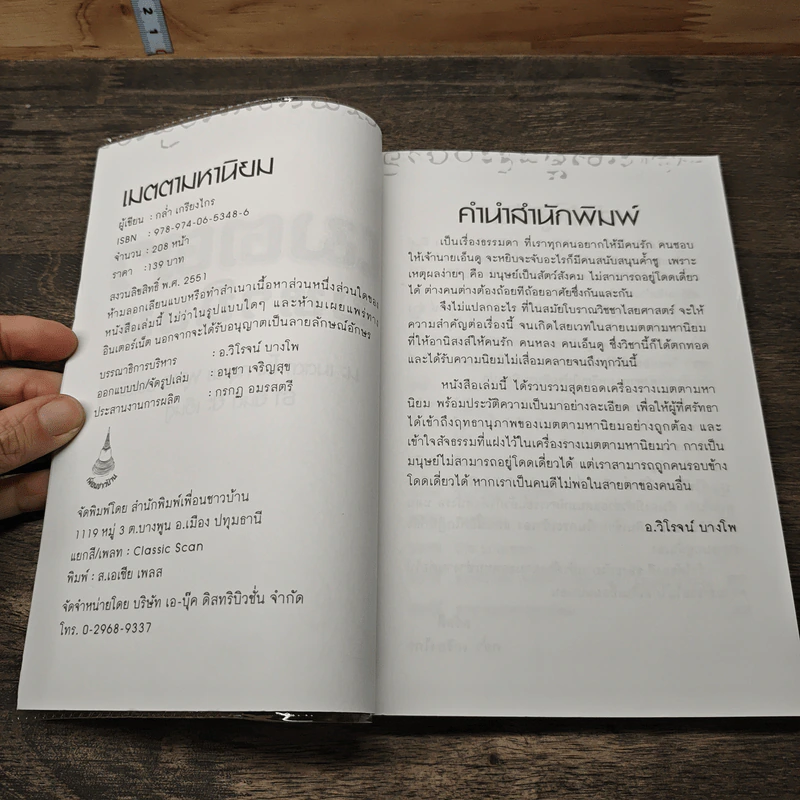 เมตตามหานิยม
ผู้เขียน : กล่ำ เกรียงไกร
ISBN : 978-974-06-5348-6
จำนวน : 208 หน้า
ราคา : 139 บาท
สงวนลิขสิทธิ์ พ.ศ. 2551
ห้ามลอกเลียนแบบหรือทำสำเนาเนื้อหาส่วนหนึ่งส่วนใดของ
หนังสือเล่มนี้ ไม่ว่าในรูปแบบใดๆ และห้ามเผยแพร่ทาง
อินเตอร์เน็ต นอกจากจะได้รับอนุญาตเป็นลายลักษณ์อักษร
บรรณาธิการบริหาร : อ.วิโรจน์ บางโพ
ออกแบบปก/จัดรูปเล่ม : อนุชา เจริญสุข
ประสานงานการผลิต : กรกฎ อมรสตรี
เพื่อนชาวบ้าน
จัดพิมพ์โดย สำนักพิมพ์เพื่อนชาวบ้าน
1119 หมู่ 3 ต.บางพูน อ.เมือง ปทุมธานี
แยกสี/เพลท : Classic Scan
พิมพ์ : ส.เอเซีย เพลส
จัดจำหน่ายโดย บริษัท เอ-บุ๊ค ดิสทริบิวชั่น จำกัด
โทร. 0-2968-9337
คำนำสำนักพิมพ์
เป็นเรื่องธรรมดา ที่เราทุกคนอยากให้มีคนรัก คนชอบ
ให้เจ้านายเอ็นดู จะหยิบจะจับอะไรก็มีคนสนับสนุนค้ำชู เพราะ
เหตุผลง่ายๆ คือ มนุษย์เป็นสัตว์สังคม ไม่สามารถอยู่โดดเดี่ยว
ได้ ต่างคนต่างต้องถ้อยทีถ้อยอาศัยซึ่งกันและกัน
จึงไม่แปลกอะไร ที่ในสมัยโบราณวิชชาไสยศาสตร์ จะให้
ความสำคัญต่อเรื่องนี้ จนเกิดไสยเวทในสายเมตตามหานิยม
ที่ให้อานิสงส์ให้คนรัก คนหลง คนเอ็นดู ซึ่งวิชานี้ก็ได้ตกทอด
และได้รับความนิยมไม่เสื่อมคลายจนถึงทุกวันนี้
หนังสือเล่มนี้ ได้รวบรวมสุดยอดเครื่องรางเมตตามหา
นิยม พร้อมประวัติความเป็นมาอย่างละเอียด เพื่อให้ผู้ที่ศรัทธา
ได้เข้าถึงฤทธานุภาพของเมตตามหานิยมอย่างถูกต้อง และ
เข้าใจสัจธรรมที่แฝงไว้ในเครื่องรางเมตตามหานิยมว่า การเป็น
มนุษย์ไม่สามารถอยู่โดดเดี่ยวได้ แต่เราสามารถถูกคนรอบข้าง
โดดเดี่ยวได้ หากเราเป็นคนดีไม่พอในสายตาของคนอื่น
อ.วิโรจน์ บางโพ
2 1